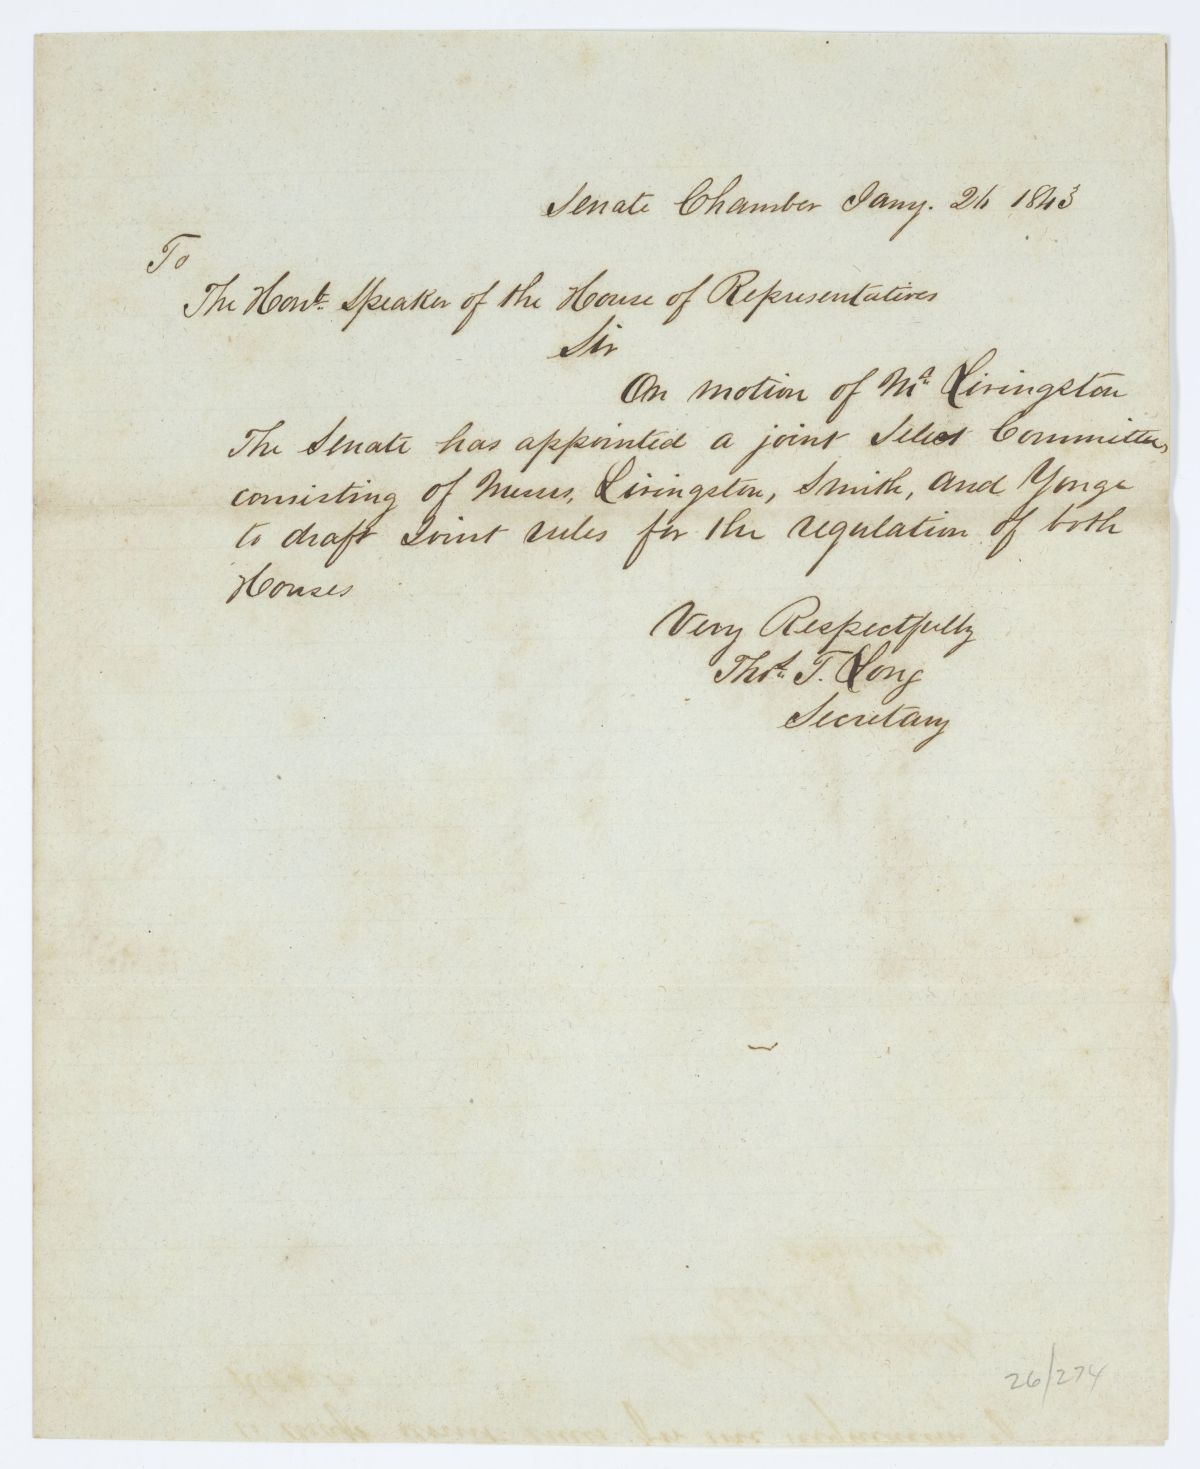 Senate Chamber Jany. 24 1843
To
The Honl. Speaker of the House of Representatives
Sir
On motion of Mr. Livingston
The Senate has appointed a joint Select Committee,
consisting of Messrs. Livingston, Smith, and Yonge
to draft Joint rules for the regulation of both
Houses
Very Respectfully
Thos. T. Long
Secretary
26/274